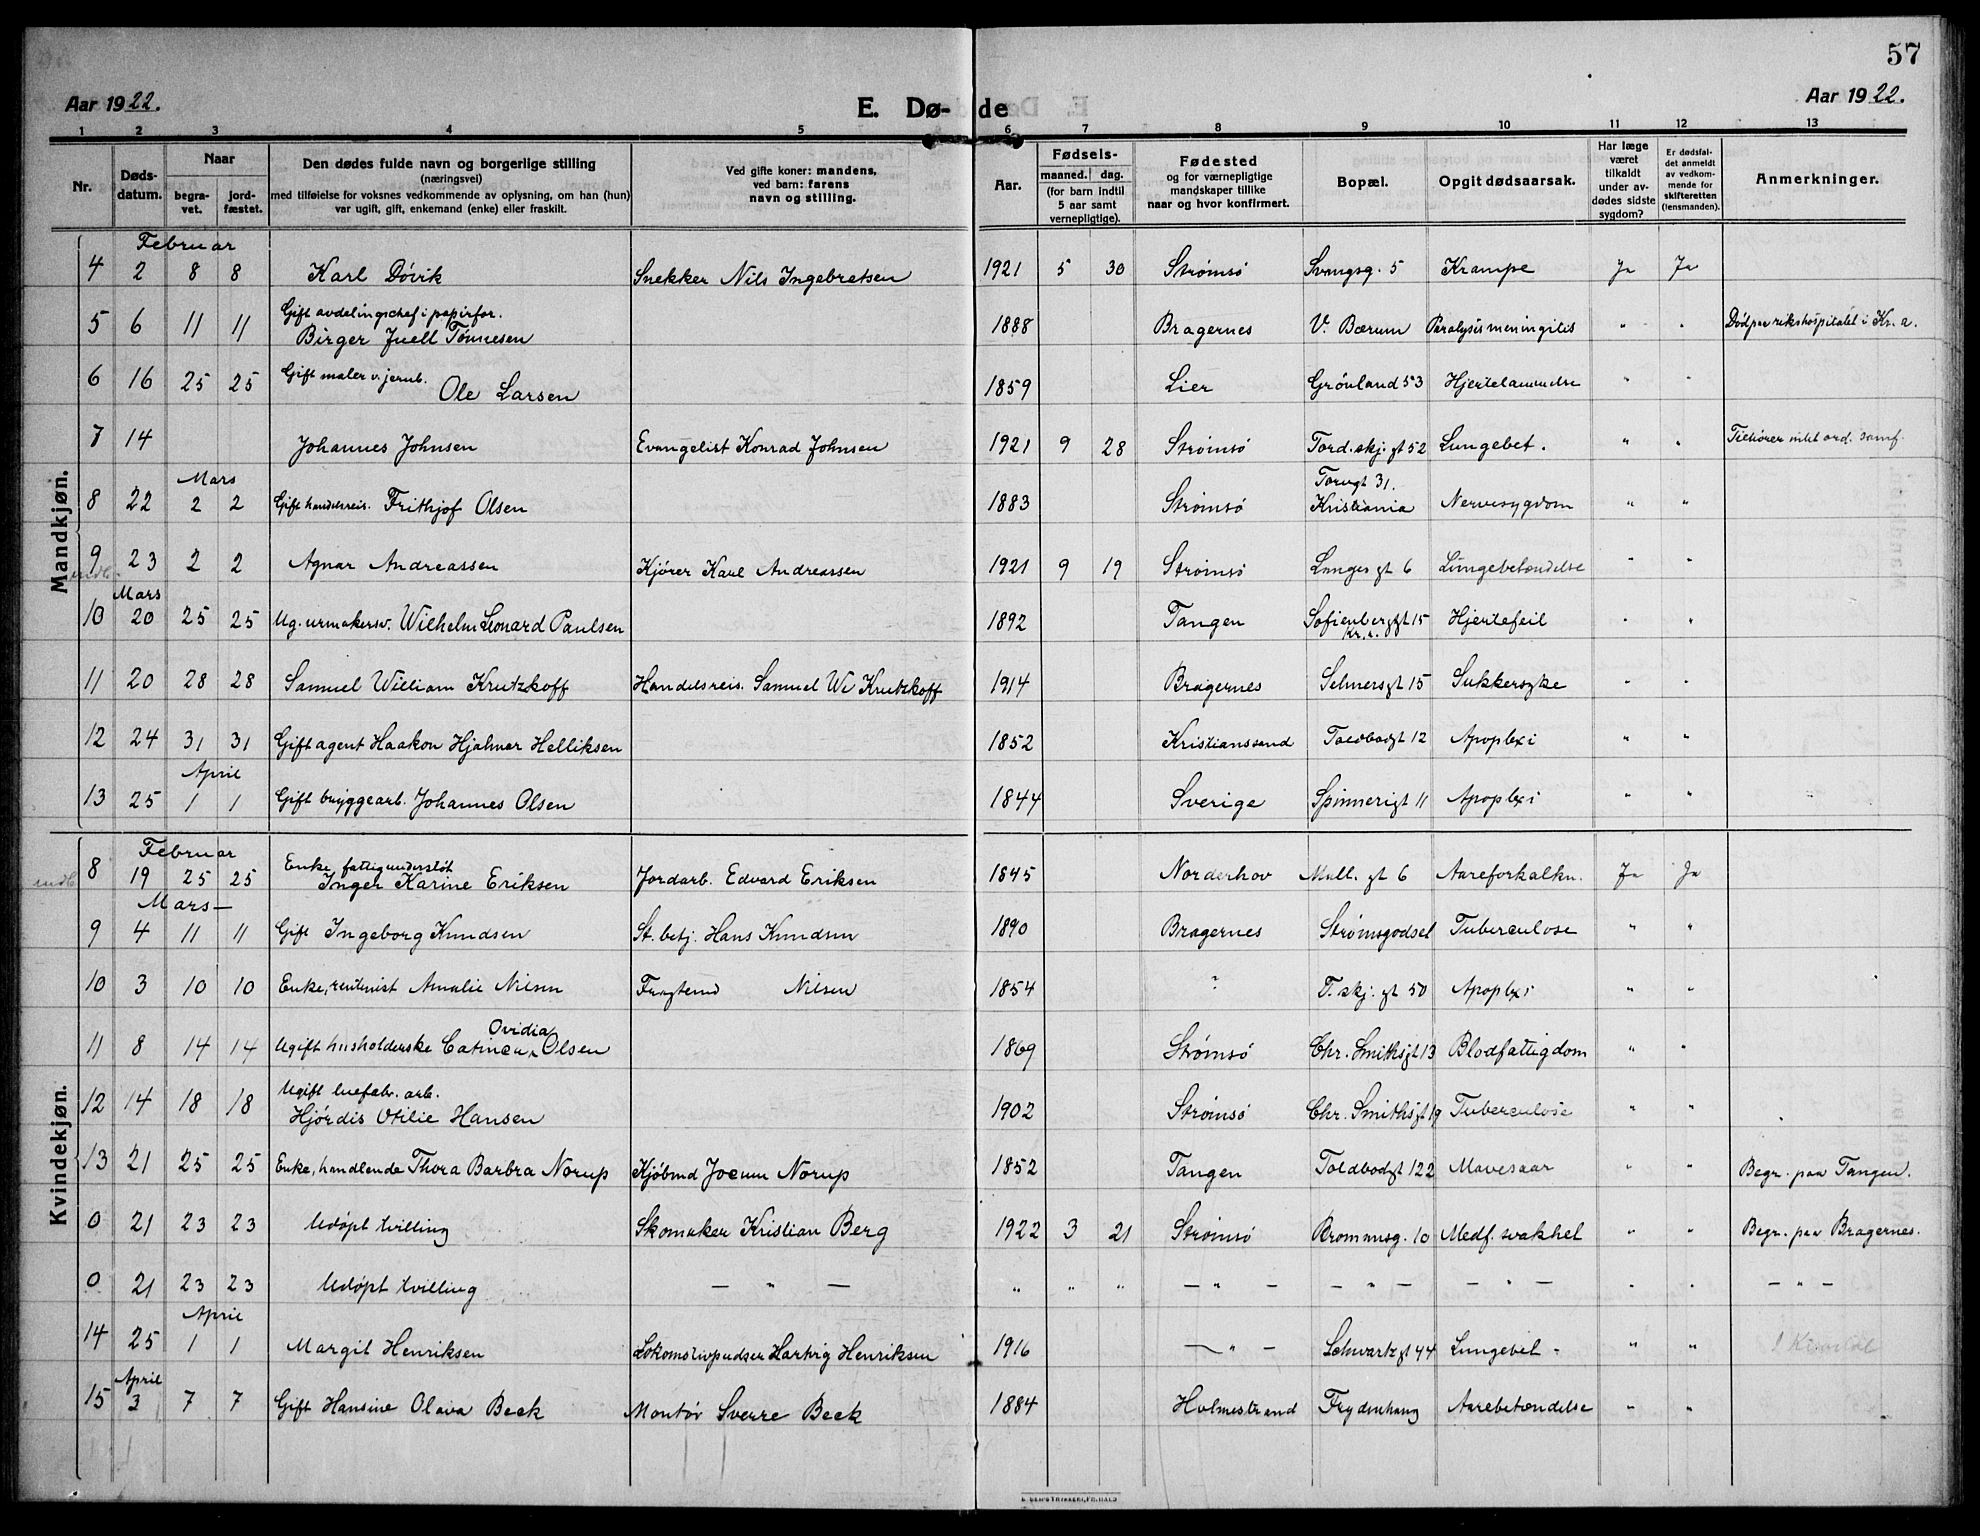 57
Aar 1922. E. Dø- de Aar 1922.
1 2 3 4 5 6 7 8 9 10 11 12 13
Nr. Døds-datum. Naar begra-vet. jord-fæstet. Den dødes fulde navn og borgerlige stilling (næringsvei) med tilføielse for voksnes vedkommende av oplysning, om han (hun) var ugift, gift, enkemand (enke) eller fraskilt. Ved gifte koner: mandens, ved barn: farens navn og stilling. Aar. Fødsels- maaned. dag. (for barn indtil 5 aar samt vernepligtige). Fødested og for værnepligtige mandskaper tillike naar og hvor konfirmert. Bopæl. Opgit dødsaarsak. Har læge været tilkaldt under av-dødes sidste sygdom? Er dødsfal-det anmeldt av vedkom-mende for skifteretten (lensmanden). Anmerkninger.
Mandkjøn.
Februar
4 2 8 8 Karl Dövik Snekker Nils Ingebretsen 1921 5 30 Strømsö Svangsg. 5 Krampe Ja Ja
Gift avdelingschef i papirfor.
5 6 11 11 Birger Juell Tönnesen 1888 Bragernes V. Bærum Paralysis meningitis " " Död paa rikshospitalet i Kr.a.
6 16 25 25 Gift maler v. jernb. Ole Larsen 1859 Lier Grönland 53 Hjertelammelse " "
7 14 Johannes Johnsen Evangelist Konrad Johnsen 1921 9 28 Strømsö Tord.skj.gt 52 Lungebet. " " Tilhører ord. samf.
Mars Torvgt 31.
8 22 2 2 Gift handelsreis. Frithjof Olsen 1883 Strømsö Kristiania Nervesygdom " "
9 23 2 2 Agnar Andreassen Kjörer Karl Andreassen 1921 9 19 Strømsö Langes gt 6 Lungebetændelse " "
indb.
Mars
10 20 25 25 Ug. urmakersv. Wilhelm Leonard Paulsen 1892 Tangen Sofienberggt 15 Kr.a. Hjertefeil " "
11 20 28 28 Samuel William Krutzkoff Handelsreis. Samuel Wi Krutzkoff 1914 Bragernes Selmersgt 15 Sukkersyke " "
12 24 31 31 Gift agent Haakon Hjalmar Helliksen 1852 Kristianssand Toldbodgt 12 Apoplexi " "
April
13 25 1 1 Gift bryggearb. Johannes Olsen 1844 Sverige Spinnerigt 11 Apoplexi " "
Kvindekjøn.
Februar Enke, fattigunderstöt
indb. 8 19 25 25 Inger Karine Eriksen Jordarb. Edvard Eriksen 1845 Norderhov Møll. gt 6 Aareforkalkn. Ja Ja
Mars
9 4 11 11 Gift Ingeborg Knudsen St.betj. Hans Knudsen 1890 Bragernes Strømsgodset Tuberculose " "
10 3 10 10 Enke, rentenist Amalie Nilsen Fragtemd Nilsen 1854 ? T.skj. gt 50 Apoplexi " "
Ovidia
11 8 14 14 Ugift husholderske Catinca Olsen 1869 Strømsö Chr. Smithsgt 13 Blodfattigdom " "
Ugift luefabr. arb.
12 14 18 18 Hjördis Otilie Hansen 1902 Strømsö Chr. Smithsgt 19 Tuberculose " "
13 21 25 25 Enke, handlende Thora Barbra Norup Kjöbmd Jocum Norup 1852 Tangen Toldbodgt 122 Mavesaar " " Begr. paa Tangen.
0 21 23 23 Udöpt tvilling Skomaker Kristian Berg 1922 3 21 Strømsö Brommsg. 10 Medf. svakhet " " Begr. paa Bragernes.
0 21 23 23 Udöpt tvilling — " — " " " — " — — " — — " — " " — " —
April
14 25 1 1 Margit Henriksen Lokomotivpudser Hartvig Henriksen 1916 — " — Schwartzgt 44 Lungebet. " "
April
15 3 7 7 Gift Hansine Olava Beck Montör Sverre Beck 1884 Holmestrand Frydenhaug Aarebetændelse " "